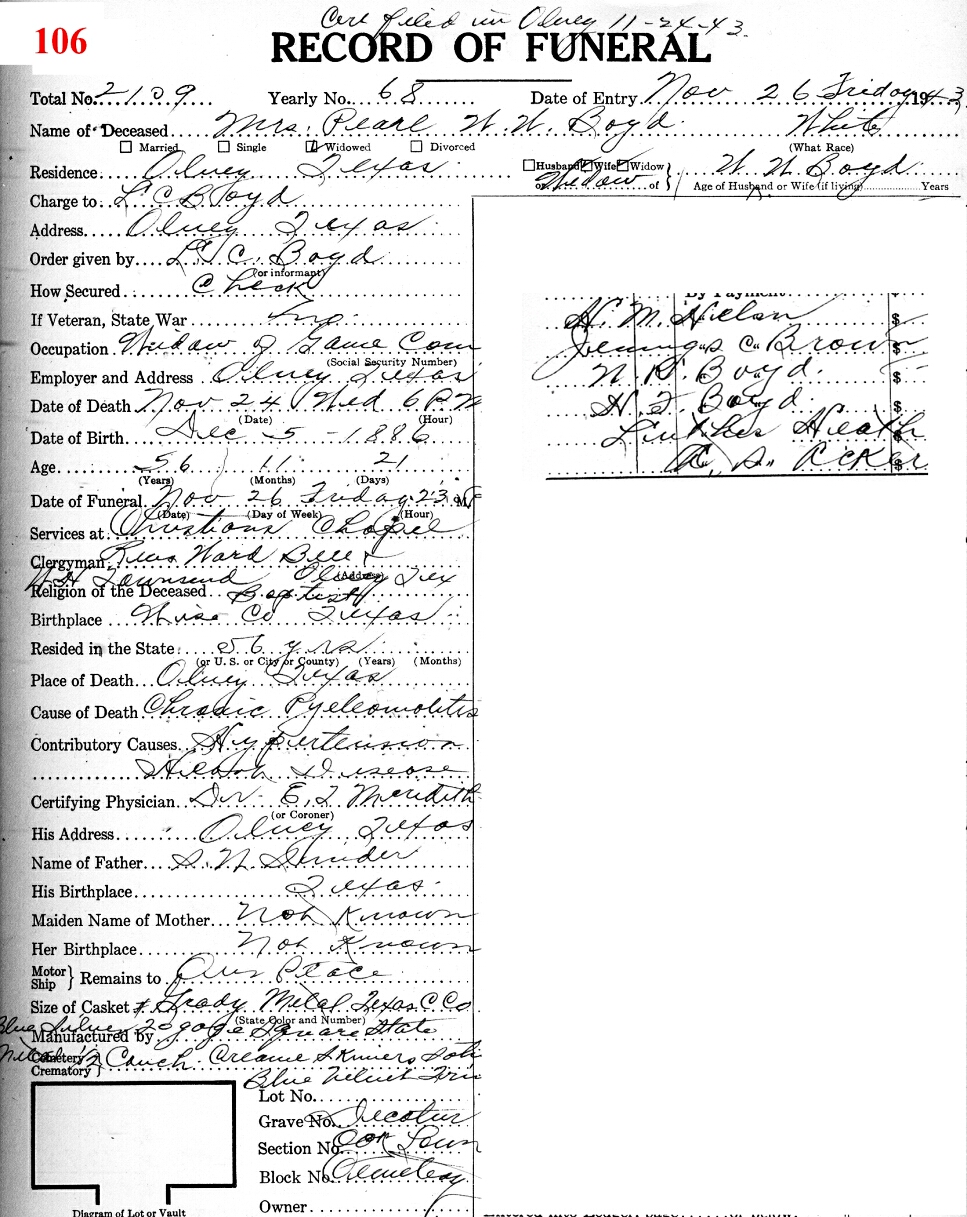 Cert filed in Olney 11-24-43.
106
RECORD OF FUNERAL
Total No. 2109 Yearly No. 68 Date of Entry Nov 26 Friday 1943
Name of Deceased Mrs. Pearl W. W. Boyd. White
Married Single Widowed Divorced (What Race)
Residence Olney Texas. Husband Wife Widow W W Boyd
or Widow of Age of Husband or Wife (if living) Years
Charge to L C Boyd
Address Olney Texas
Order given by L. C. Boyd
(or informant)
How Secured Check
If Veteran, State War no.
Occupation Widow of Same Com
(Social Security Number)
Employer and Address Olney Texas
Date of Death Nov 24 Wed 6 PM
(Date) (Hour)
Date of Birth Dec 5 - 1886
Age 56 11 21
(Years) (Months) (Days)
Date of Funeral Nov 26 Friday 2:3 M
(Date) (Day of Week) (Hour)
Services at Christians Chapel
Clergyman Revs Ward Bell &
Townsend Olney Tex
(Address)
Religion of the Deceased Baptist
Birthplace Wise Co Texas
Resided in the State 56 yrs
(or U. S. or City or County) (Years) (Months)
Place of Death Olney Texas
Cause of Death Chronic
Contributory Causes Hypertension
Heart Disease
Certifying Physician Dr. E. J. Meredith
(or Coroner)
His Address Olney Texas
Name of Father S. N.
His Birthplace Texas.
Maiden Name of Mother Not Known
Her Birthplace Not Known
Motor Ship } Remains to Our Place
Size of Casket Grady Metal Texas C Co
(State Color and Number)
Blue Silver 20 gage Square State
Manufactured by
Cemetery Crematory } 1/2 Couch Creame
Blue Velvet
Lot No.
Grave No. Decatur
Section No. Lawn
Block No. Cemetery
Owner
Diagram of Lot or Vault
By Payment
H. M. $
Jennings C. Brown $
N. R. Boyd. $
H. F. Boyd. $
Luther Heath $
A. S. Acker $